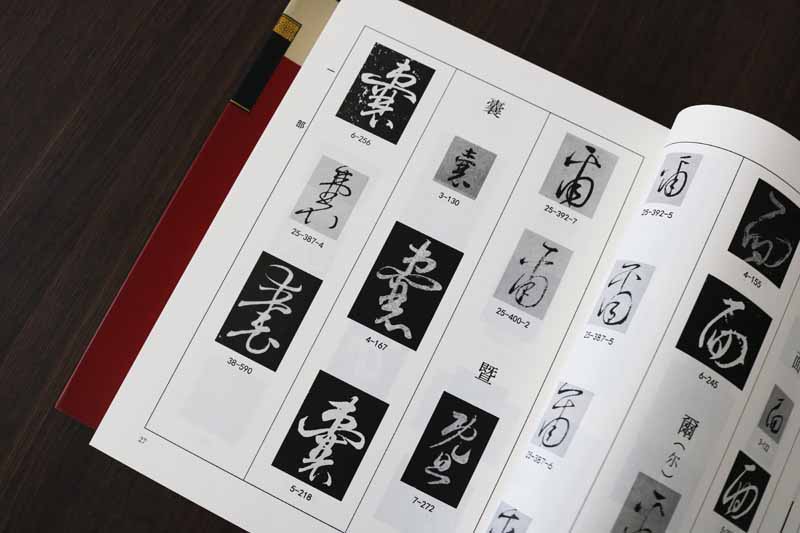 4-155
面
6-245
爾（尔）
25-392-5
25-387-5
25-387-6
25-392-7
25-400-2
暨
7-272
囊
囊
3-130
囊
4-167
囊
5-218
囊
6-256
25-387-4
38-590
一部
27